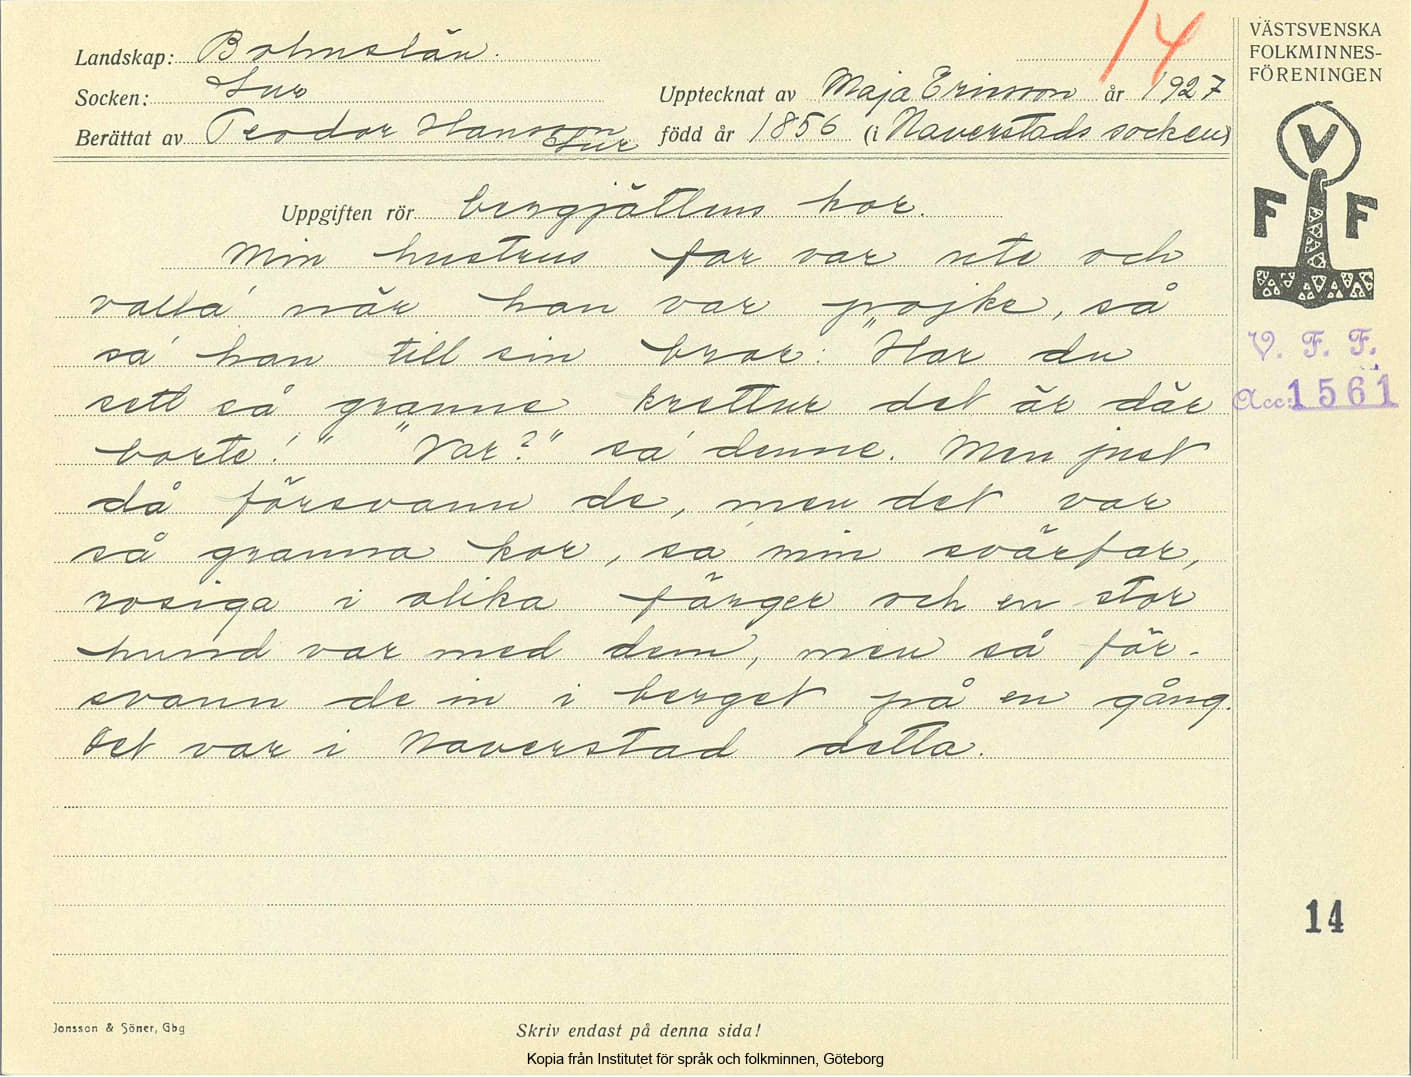 14
Landskap: Bohuslän.
Socken: Lur
Upptecknat av Maja Ericsson år 1927
Berättat av Teodor Hansson Lur född år 1856 (i Naverstads socken)
Uppgiften rör bergjättens kor.
Min hustrus far var ute och
valla' när han var pojke, så
sa' han till sin bror: "Har du
sett så granne krettur det är där
borte!" "Var?" sa' denne. Men just
då försvann de, men det var
så granna kor, sa' min svärfar,
rosiga i olika färger och en stor
hund var med dem, men så för-
svann de in i berget på en gång.
Det var i Naverstad detta.
VÄSTSVENSKA
FOLKMINNES-
FÖRENINGEN
V
F F
V. F. F.
Acc: 1561
14
Jonsson & Söner, Gbg
Skriv endast på denna sida!
Kopia från Institutet för språk och folkminnen, Göteborg